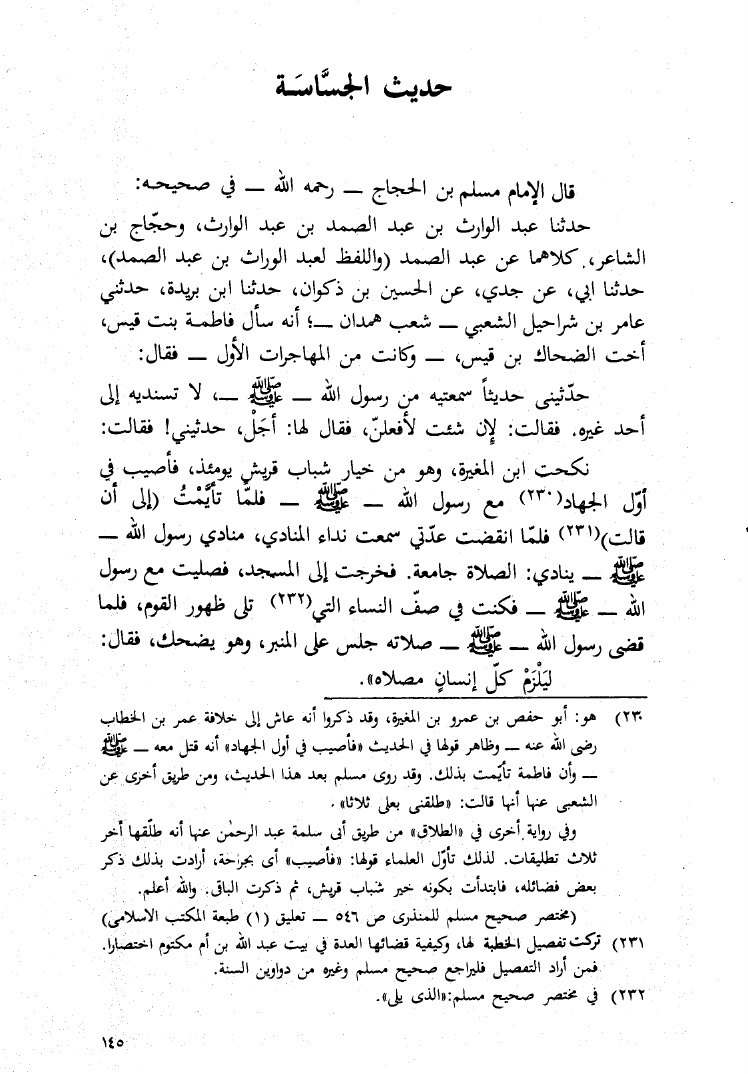 حديث الجسَّاسَة
قال الإمام مسلم بن الحجاج — رحمه الله — في صحيحه:
حدثنا عبد الوارث بن عبد الصمد بن عبد الوارث، وحجّاج بن
الشاعر، كلاهما عن عبد الصمد (واللفظ لعبد الوراث بن عبد الصمد)،
حدثنا ابي، عن جدي، عن الحسين بن ذكوان، حدثنا ابن بريدة، حدثني
عامر بن شراحيل الشعبي — شعب همدان —؛ أنه سأل فاطمة بنت قيس،
أخت الضحاك بن قيس، — وكانت من المهاجرات الأول — فقال:
حدّثيني حديثاً سمعتيه من رسول الله — ﷺ —، لا تسنديه إلى
أحد غيره. فقالت: لإن شئت لأفعلنّ، فقال لها: أجَلْ، حدثيني! فقالت:
نكحت ابن المغيرة، وهو من خيار شباب قريش يومئذ، فأصيب في
أوّل الجهاد(٢٣٠) مع رسول الله — ﷺ — فلمَّا تأيَّمْتُ (إلى أن
قالت)(٢٣١) فلمّا انقضت عدّتي سمعت نداء المنادي، منادي رسول الله —
ﷺ — ينادي: الصلاة جامعة. فخرجت إلى المسجد، فصليت مع رسول
الله — ﷺ — فكنت في صفّ النساء التي(٢٣٢) تلى ظهور القوم، فلما
قضى رسول الله — ﷺ — صلاته جلس على المنبر، وهو يضحك، فقال:
ليَلْزَمْ كلّ إنسانٍ مصلاه».
٢٣٠) هو: أبو حفص بن عمرو بن المغيرة، وقد ذكروا أنه عاش إلى خلافة عمر بن الخطاب
رضى الله عنه — وظاهر قولها في الحديث «فأصيب في أول الجهاد» أنه قتل معه — ﷺ
— وأن فاطمة تأيّمت بذلك. وقد روى مسلم بعد هذا الحديث، ومن طريق أخرى عن
الشعبى عنها أنها قالت: «طلقنى بعلى ثلاثا».
وفي رواية أخرى في «الطلاق» من طريق أبى سلمة عبد الرحمٰن عنها أنه طلّقها أخر
ثلاث تطليقات. لذلك تأوّل العلماء قولها: «فأصيب» أى بجراحة، أرادت بذلك ذكر
بعض فضائله، فابتدأت بكونه خير شباب قريش، ثم ذكرت الباقى. والله أعلم.
(مختصر صحيح مسلم للمنذرى ص ٥٤٦ — تعليق (١) طبعة المكتب الاسلامى)
٢٣١) تركت تفصيل الخطبة لها، وكيفية قضائها العدة في بيت عبد الله بن أم مكتوم اختصارا.
فمن أراد التفصيل فليراجع صحيح مسلم وغيره من دواوين السنة.
٢٣٢) في مختصر صحيح مسلم:«الذى يلى».
١٤٥